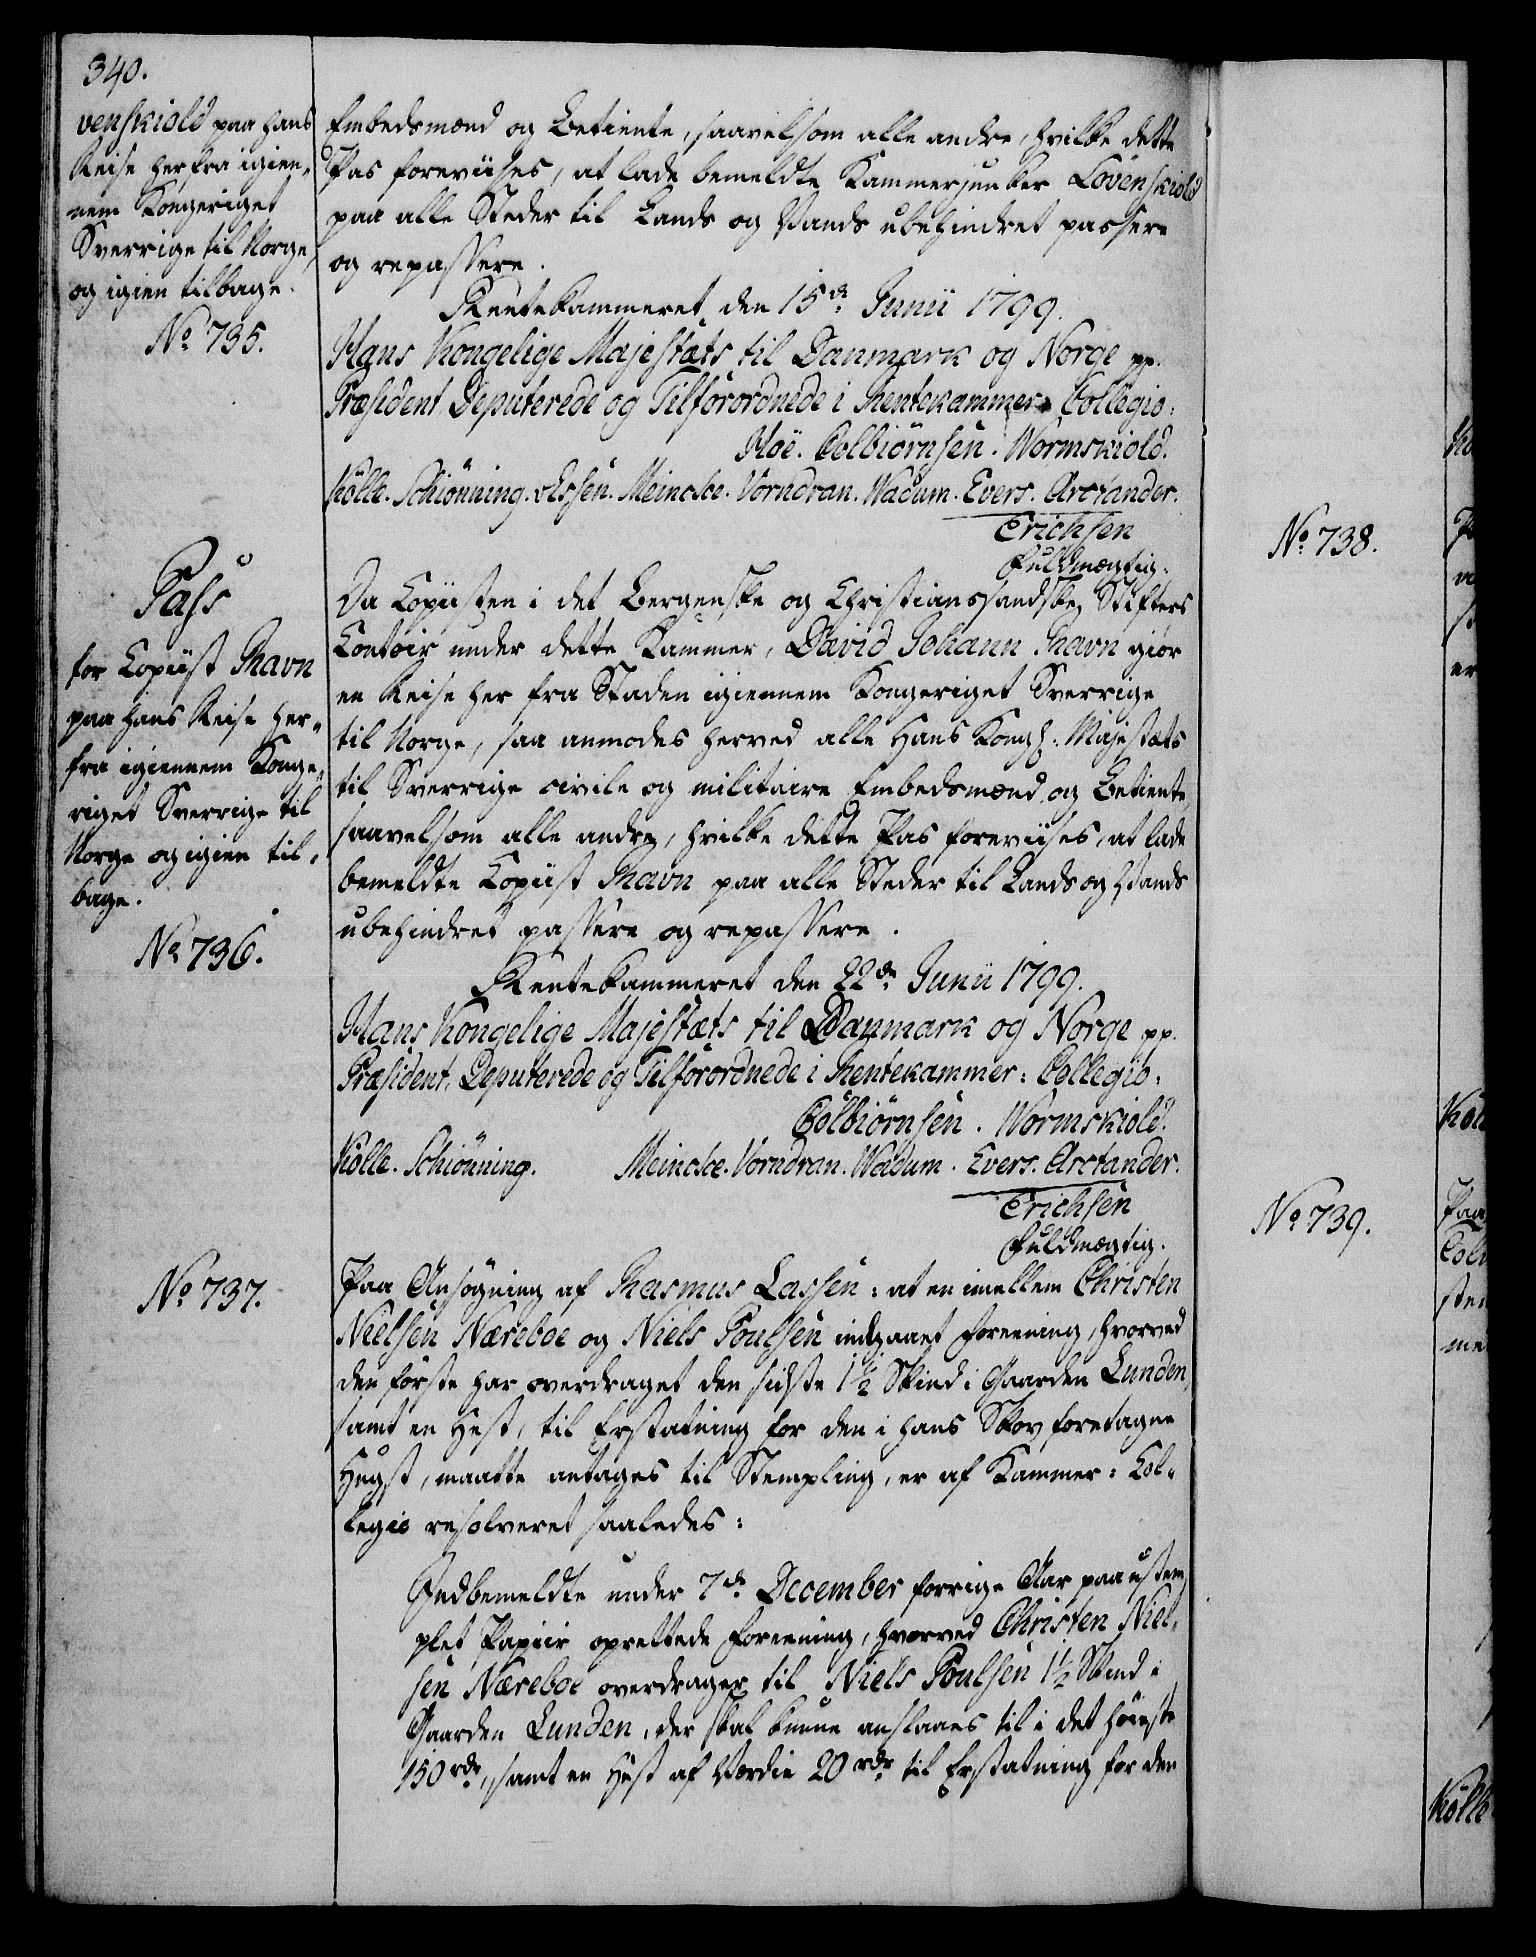 340.
venskiold paa hans
Reise herfra igien-
nem Kongeriget
Sverrige til Norge,
og igien tilbage.
No 735.
Embedsmænd og Betiente, saavelsom alle andre, hvilke dette
Pas foreviises, at lade bemeldte Kammerjunker Lövenskiold
paa alle Steder til Lands og Vands ubehindret passere
og repassere.
Rentekammeret, den 15de Junii 1799.
Hans Kongelige Majestæts til Danmark og Norge pp.
Præsident, Deputerede og Tilforordnede i Rentekammer-Collegio:
Moë. Colbiörnsen. Wormskiold.
Kölle. Schiönning. Essen. Meincke. Vorndran. Wadum. Evers. Arctander.
Erichsen
Fuldmægtig.
Pass
for Copiist Ravn
paa hans Reise her-
fra igiennem Konge-
riget Sverrige til
Norge og igien til-
bage.
No 736.
Da Copiisten i det Bergenske og Christianssandske Stifters
Contoir under dette Kammer, David Johann Ravn giör
en Reise her fra Staden igiennem Kongeriget Sverrige
til Norge, saa anmodes herved alle Hans Kongl. Majestæts
til Sverrige civile og militaire Embedsmænd og Betiente
saavelsom alle andre, hvilke dette Pas foreviises, at lade
bemeldte Copiist Ravn paa alle Steder til Lands og Vands
ubehindret passere og repassere.
Rentekammeret den 22de Junii 1799.
Hans Kongelige Majestæts til Danmark og Norge pp.
Præsident, Deputerede og Tilforordnede i Rentekammer-Collegio:
Colbiörnsen. Wormskiold.
Kölle. Schiönning. Meincke. Vorndran. Wadum. Evers. Arctander.
Erichsen
Fuldmægtig.
No 737.
Paa Ansögning af Rasmus Lassen: at en imellem Christen
Nielsen Næreboe og Niels Poulsen indgaaet Foreening, hvorved
den förste har overdraget den sidste 1 1/2 Skind i Gaarden Lunden,
samt en Hest, til Erstatning for den i hans Skov foretagne
Hugst, maatte antages til Stempling, er af Kammer-Col-
legio resolveret saaledes:
Indbemeldte under 7de December forrige Aar paa ustem-
plet Papiir oprettede Foreening, hvorved Christen Niel-
sen Næreboe overdrager til Niels Poulsen 1 1/2 Skind i
Gaarden Lunden, der skal kunne anslaaes til i det höieste
150 rdr, samt en Hest af Værdie 20 rdr til Erstatning for den
No 738.
No 739.